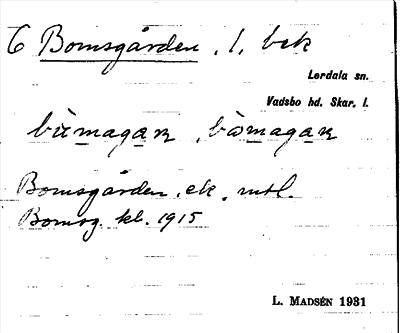 Bomsgården, l, bek
Lerdala sn.
Vadsbo hd. Skar. l.
bùmagaɴ, bòmagaɴ
Bomsgården, ek. mtl.
Bomsg. kl. 1915
L. MADSÉN 1931